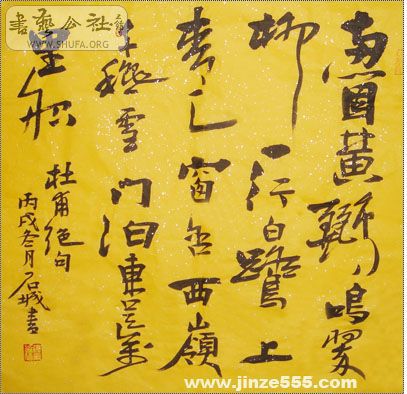 書藝公社
WWW.SHUFA.ORG
兩個黄鸝鳴翠
柳一行白鷺上
青天窗含西嶺
千秋雪门泊東吴萬
里船
杜甫絶句
丙戌叁月石城書
www.jinze555.com